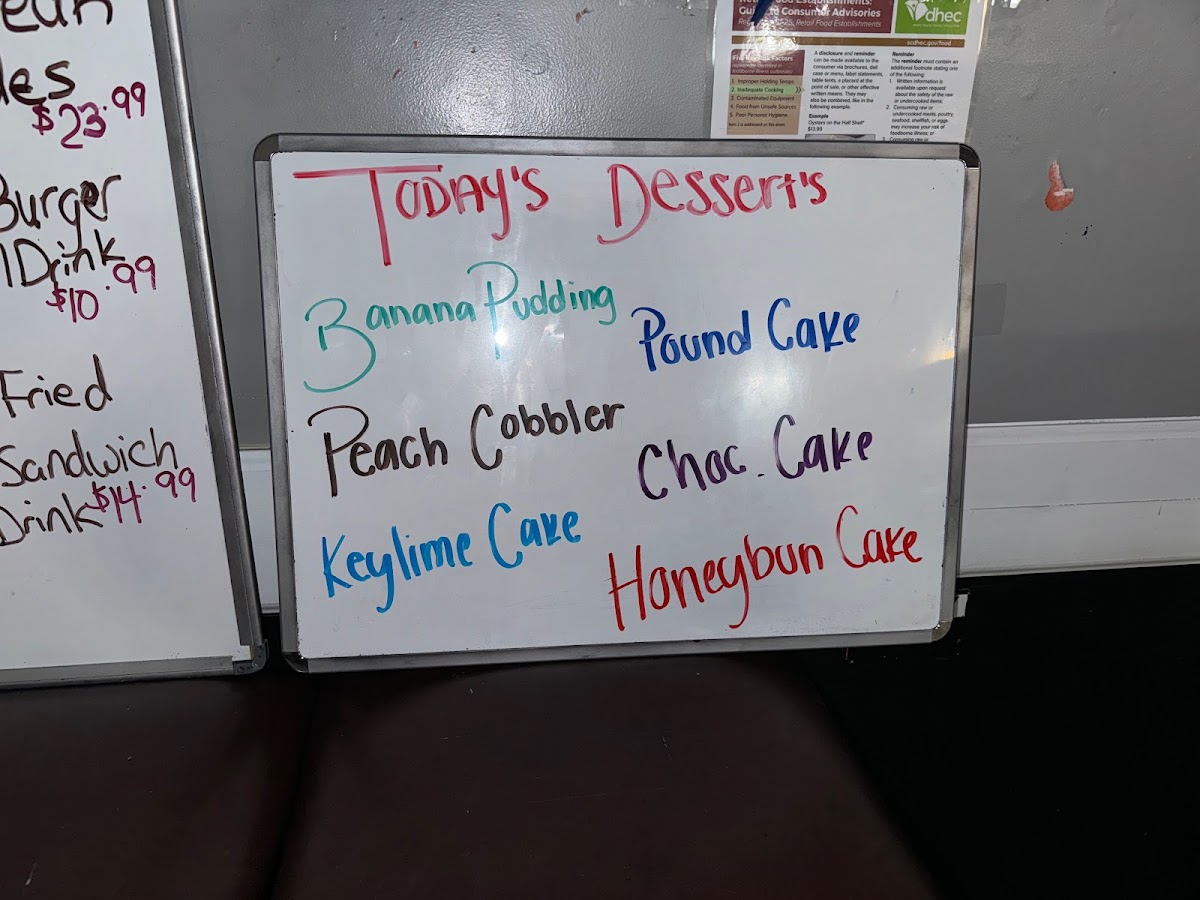 $23.99
Burger
Drink
$10.99
Fried
Sandwich
Drink $14.99
Today's Dessert's
Banana Pudding
Peach Cobbler
Keylime Cake
Pound Cake
Choc. Cake
Honeybun Cake
Guide to Consumer Advisories
dhec
scdhec.gov/food
1. Improper Holding Temps
2. Inadequate Cooking
3. Contaminated Equipment
4. Food from Unsafe Sources
5. Poor Personal Hygiene
A disclosure and reminder
can be made available to the
consumer via brochures, deli
case or menu, label statements,
table tents, a placard at the
point of sale, or other effective
written means. They may
also be combined, like in the
following example.
Example
Oysters on the Half Shell*
$13.99
Reminder
The reminder must contain an
additional footnote stating one
of the following:
1. Written information is
available upon request
about the safety of the raw
or undercooked items;
2. Consuming raw or
undercooked meats, poultry,
seafood, shellfish, or eggs
may increase your risk of
foodborne illness; or